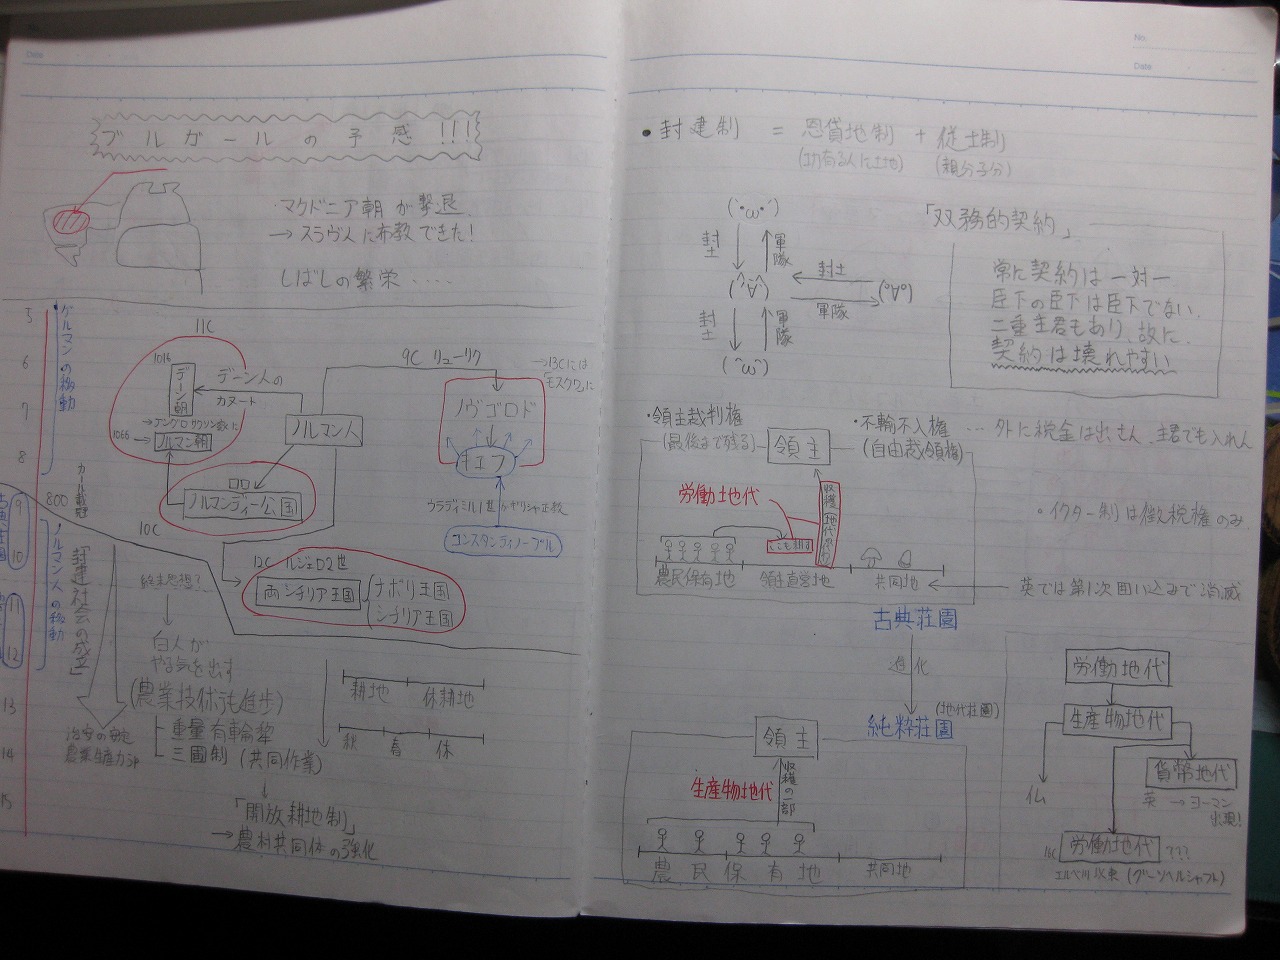 Date
ブルガールの予感!!!
・マクドニア朝が撃退.
→スラヴ人に布教できた!
しばしの繁栄‥‥
5
6
7
8
9
10
11
12
13
14
15
ゲルマンの移動
800
カール戴冠
ノルマン人の移動
「封建社会の成立」
11C
1016
デーン朝
デーン人の
カヌート
→アングロサクソン
1066→
ノルマン朝
ノルマン人
ロロ
ノルマンディー公国
10C
9C リューリク
→13Cには
「モスクワ」に
ノヴゴロド
キエフ
ウラディミル1世がギリシャ正教
コンスタンティノープル
12C ルジェロ2世
両シチリア王国
ナポリ王国
シチリア王国
終末思想?
白人が
やる気を出す
(農業技術うも進歩)
重量有輪犂
三圃制(共同作業)
治安の安定
農業生産力up
「開放耕地制」
→農村共同体の強化
耕地
休耕地
秋
春
休
No.
Date
・封建制 = 恩貸地制 + 従士制
(功有る人に土地) (親分子分)
(`・ω・´)
封土
軍隊
(^∀^)
封土
軍隊
(°∀°)
封土
軍隊
(^ω^)
「双務的契約」
常に契約は一対一
臣下の臣下は臣下でない.
二重主君もあり、故に、
契約は壊れやすい
・領主裁判権
(最後まで残る)
領主
・不輸不入権 … 外に税金は出さん、主君でも入れん
(自由裁領権)
・イクター制は徴税権のみ.
労働地代
収穫
とても耕す
農民保有地
領主直営地
共同地
英では第1次囲い込みで消滅
古典荘園
進化
(地代荘園)
純粋荘園
領主
生産物地代
収穫の一部
農民保有地
共同地
労働地代
生産物地代
仏
貨幣地代
英 → ヨーマン
出現!
16C
労働地代
???
エルベ川以東(グーツヘルシャフト)